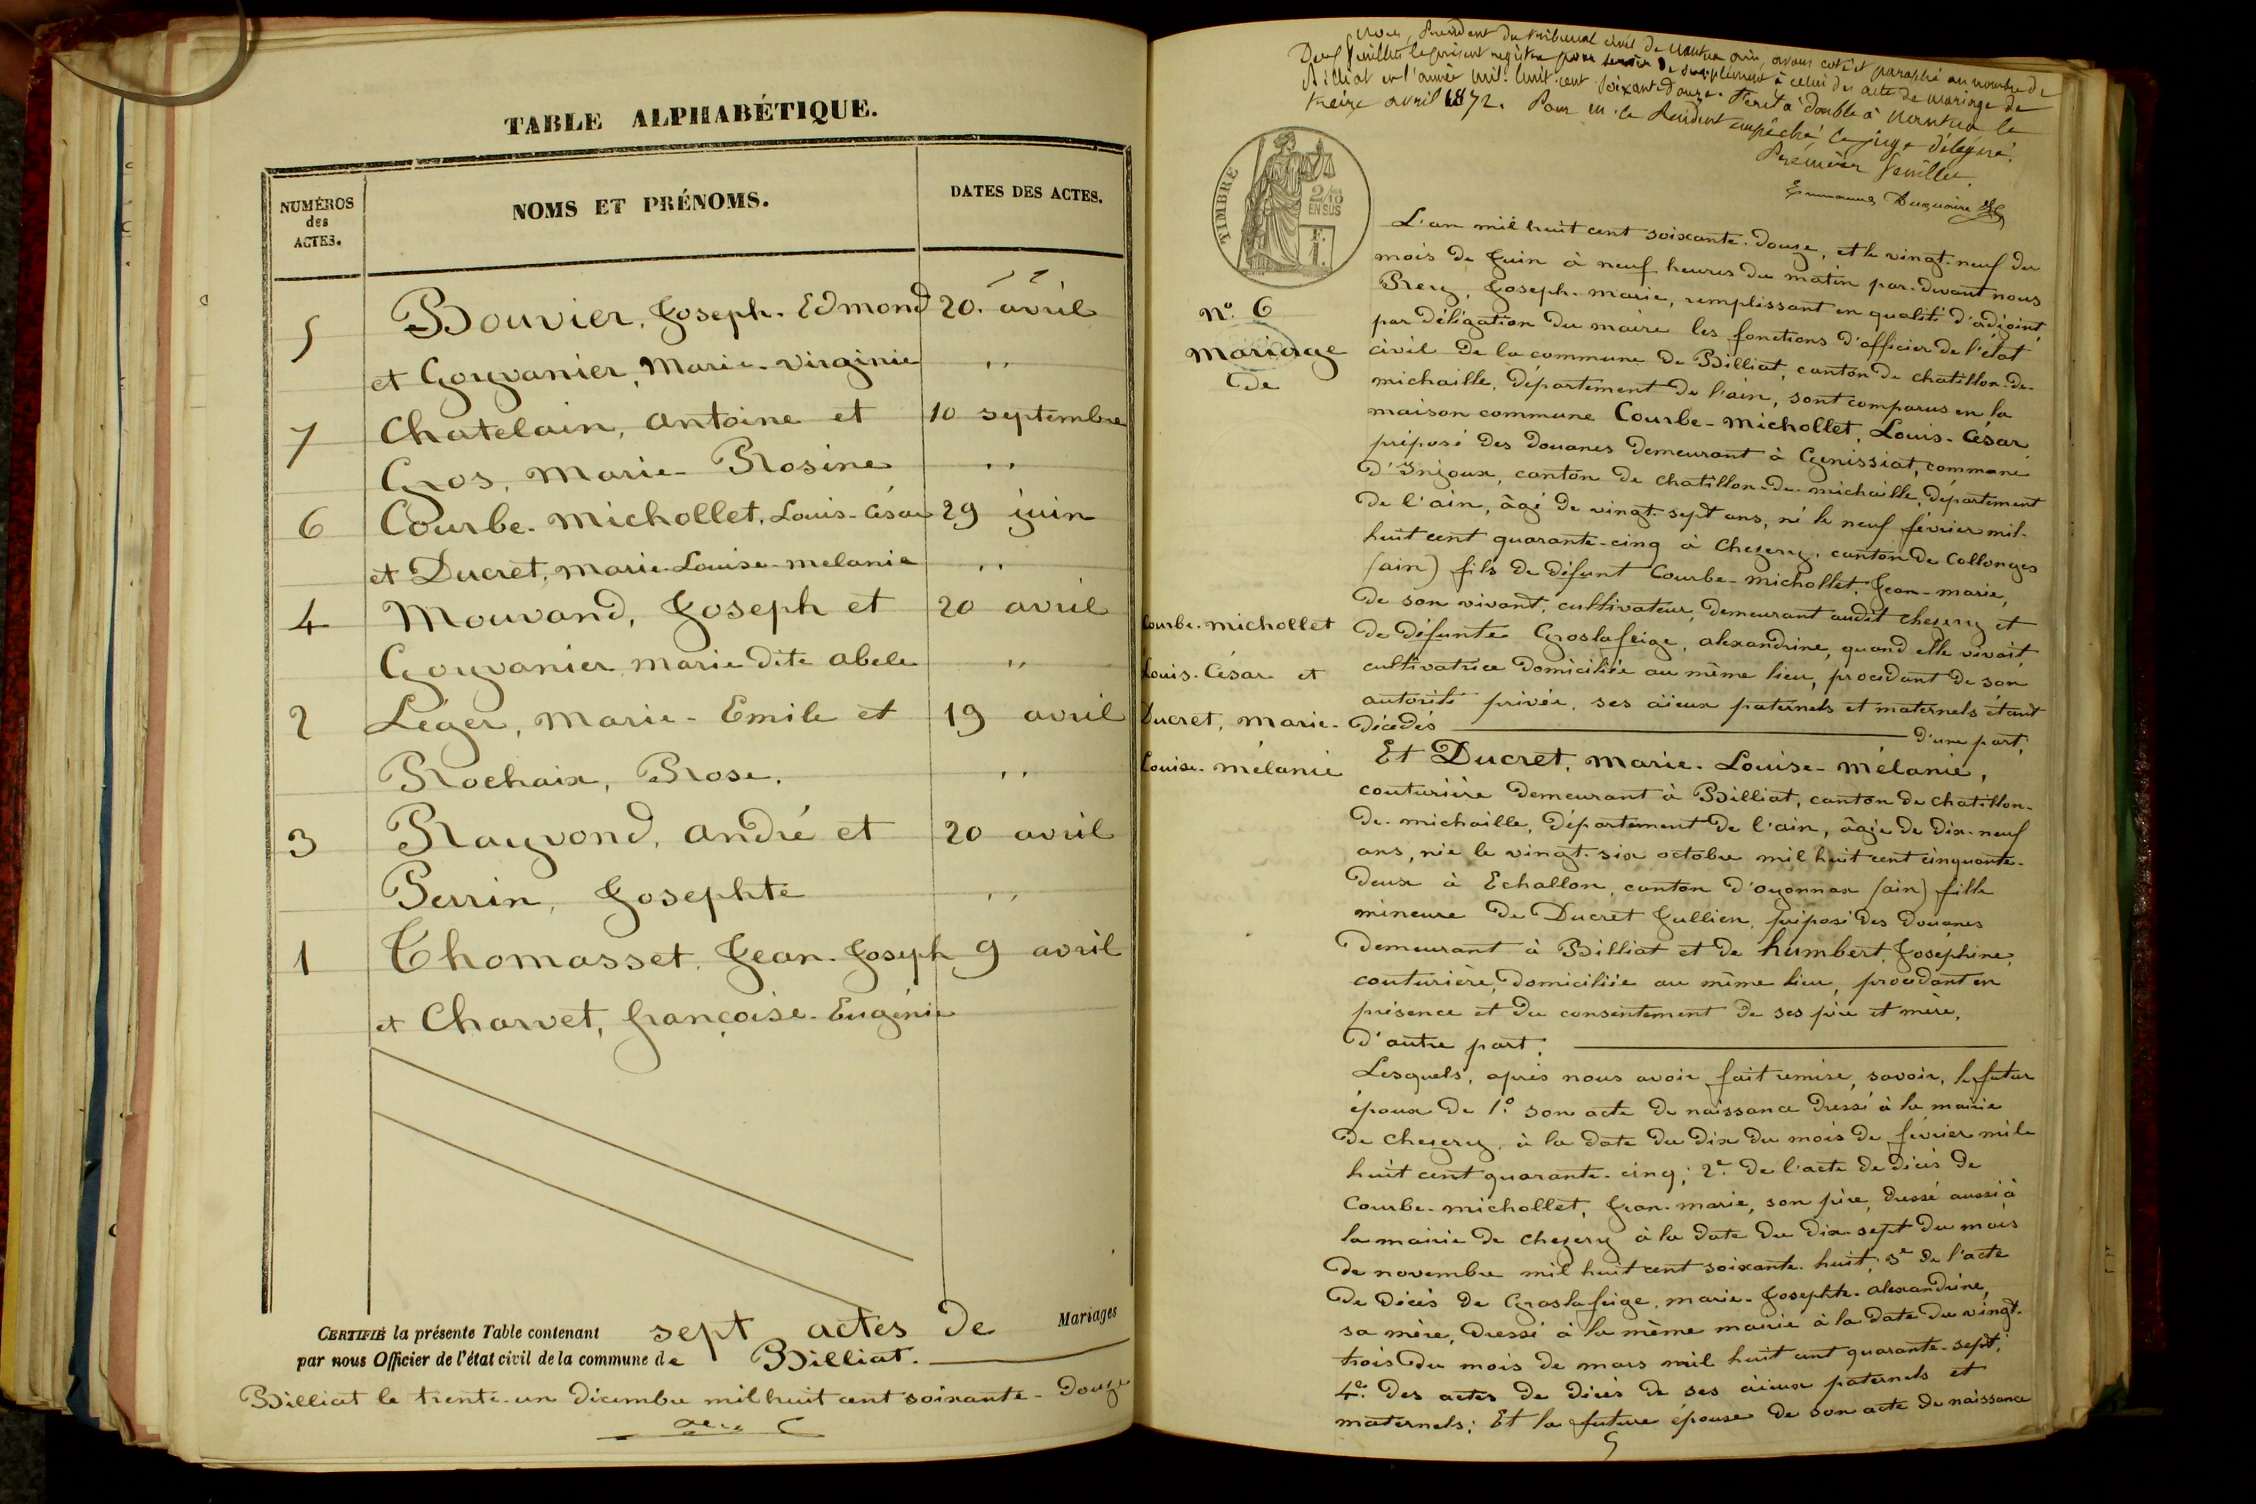 TABLE ALPHABÉTIQUE.
NUMÉROS
des
ACTES.
NOMS ET PRÉNOMS.
DATES DES ACTES.
5 Bouvier, Joseph-Edmond 20 avril
et Gouvanier, Marie-Virginie ,,
7 Chatelain, Antoine et 10 septembre
Gros, Marie-Rosine ,,
6 Courbe-Michollet, Louis-César 29 juin
et Ducret, Marie-Louise-mélanie ,,
4 Mouvand, Joseph et 20 avril
Gouvanier Marie dite abele ,,
2 Léger, Marie-Emile et 19 avril
Rochaix, Rose. ,,
3 Rayvond, André et 20 avril
Perrin, Josephte ,,
1 Thomasset, Jean-Joseph 9 avril
et Charvet, françoise-Eugénie
CERTIFIÉ la présente Table contenant sept actes de Mariages
par nous Officier de l'état civil de la commune de Billiat.
Billiat le trente-un décembre mil huit cent soixante-douze
Nous, Président du tribunal civil de Nantua ain, avons coté et paraphé au nombre de
Deux feuillets le présent registre pour servir de supplément à celui des actes de mariage de
Billiat en l'année mil huit cent soixante-douze. Fait à double à Nantua le
treize avril 1872. Pour m. le Président empêché le juge délégué.
Premier feuillet.
TIMBRE
2/10
EN SUS
F.
1.
L'an mil huit cent soixante-douze, et le vingt-neuf du
mois de Juin à neuf heures du matin par-devant nous
Rey, Joseph-marie, remplissant en qualité d'adjoint,
par délégation du maire les fonctions d'officier de l'état
civil de la commune de Billiat, canton de chatillon-de-
michaille, département de l'ain, sont comparus en la
maison commune Courbe-Michollet, Louis-César,
préposé des douanes demeurant à Génissiat, commune
d'Injoux, canton de chatillon-de-michaille, département
de l'ain, âgé de vingt-sept ans, né le neuf février mil-
huit cent quarante-cinq à Chezery, canton de Collonges
(ain) fils de défunt Courbe-michollet, Jean-marie,
de son vivant, cultivateur, demeurant audit chezery et
de défunte Groslafeige, alexandrine, quand elle vivait,
cultivatrice domiciliée au même lieu, procédant de son
autorité privée, ses aïeux paternels et maternels étant
décédés d'une part;
Nº 6
Mariage
de
Courbe-michollet
Louis-César et
Ducret, Marie-
Louise-mélanie
Et Ducret, Marie-Louise-Mélanie,
couturière demeurant à Billiat, canton de chatillon-
de-michaille, département de l'ain, âgée de dix-neuf
ans, née le vingt-six octobre mil huit cent cinquante-
deux à Echallon, canton d'oyonnax (ain) fille
mineure de Ducret Jullien, préposé des douanes
demeurant à Billiat et de humbert, Joséphine,
couturière, domiciliée au même lieu, procédant en
présence et du consentement de ses père et mère,
d'autre part;
Lesquels, après nous avoir fait remise, savoir, le futur
époux de 1º son acte de naissance dressé à la mairie
de chezery, à la date du dix du mois de février mile
huit cent quarante-cinq; 2º de l'acte de décès de
Courbe-michollet, Jean-marie, son père, dressé aussi à
la mairie de chezery à la date du dix-sept du mois
de novembre mil huit cent soixante-huit, 3º de l'acte
de décès de Groslafeige, marie-Josephte-alexandrine,
sa mère, dressé à la même mairie à la date du vingt-
trois du mois de mars mil huit cent quarante-sept;
4º des actes de décès de ses aïeux paternels et
maternels; Et la future épouse de son acte de naissance